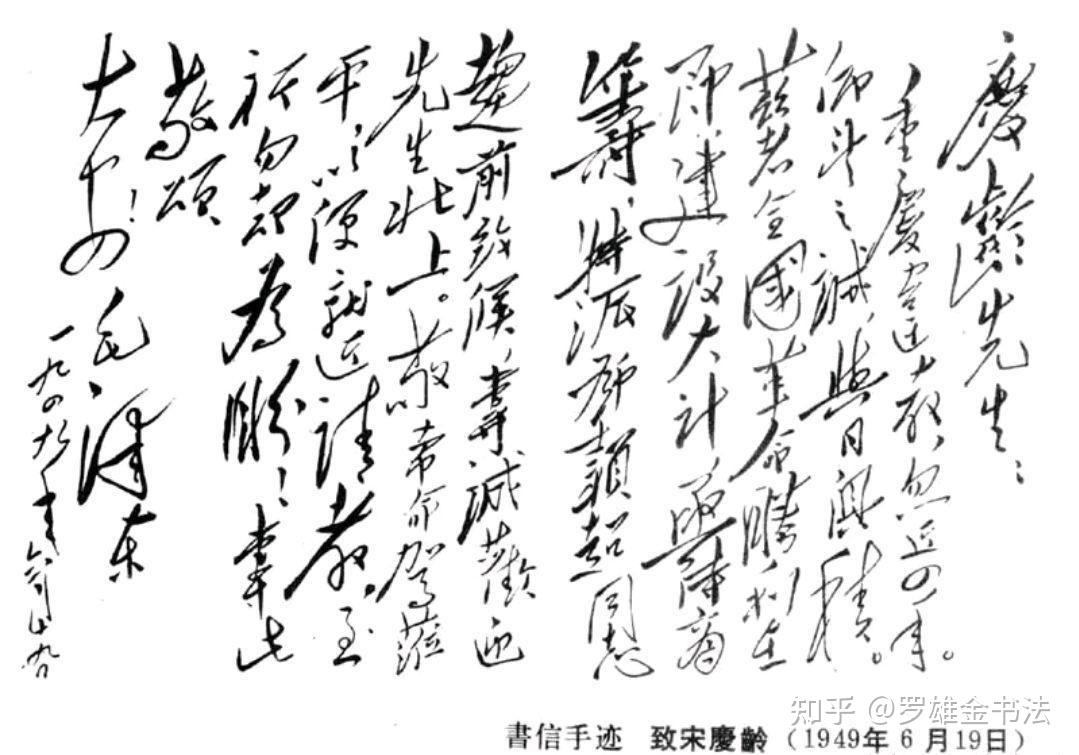 慶齡先生：
重慶違教，忽近四年。
仰望之誠，與日俱積。
茲者全國革命勝利在
即，建設大計，亟待商
籌，特派鄧穎超同志
趨前致候，專誠歡迎
先生北上。敬希命駕蒞
平，以便就近請教。至
祈勿却為盼！專此
敬頌
大安！
毛澤東
一九四九年六月十九日
書信手迹 致宋慶齡（1949年6月19日）
知乎 @罗雄金书法